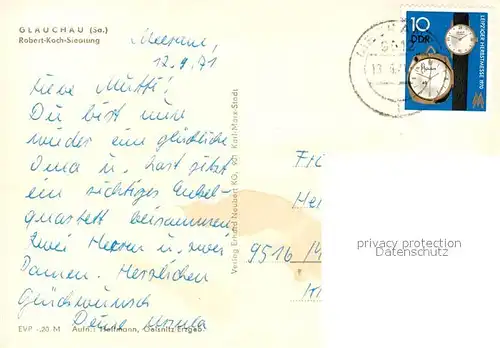 GLAUCHAU (Sa.)
Robert-Koch-Siedlung
Meerane,
12.9.71
Liebe Mutti!
Du bist nun
wieder eine glückliche
Oma u. hast jetzt
ein richtiges Enkel-
quartett beisammen
Zwei Herren u. zwei
Damen. Herzlichen
Glückwunsch
Deine Ursula
EVP -,20 M Aufn.: Hoffmann, Oelsnitz-Erzgeb.
Verlag Erhard Neubert KG, 901 Karl-Marx-Stadt
10
DDR
LEIPZIGER HERBSTMESSE 1970
9612
13.9.71
9516
privacy protection
Datenschutz